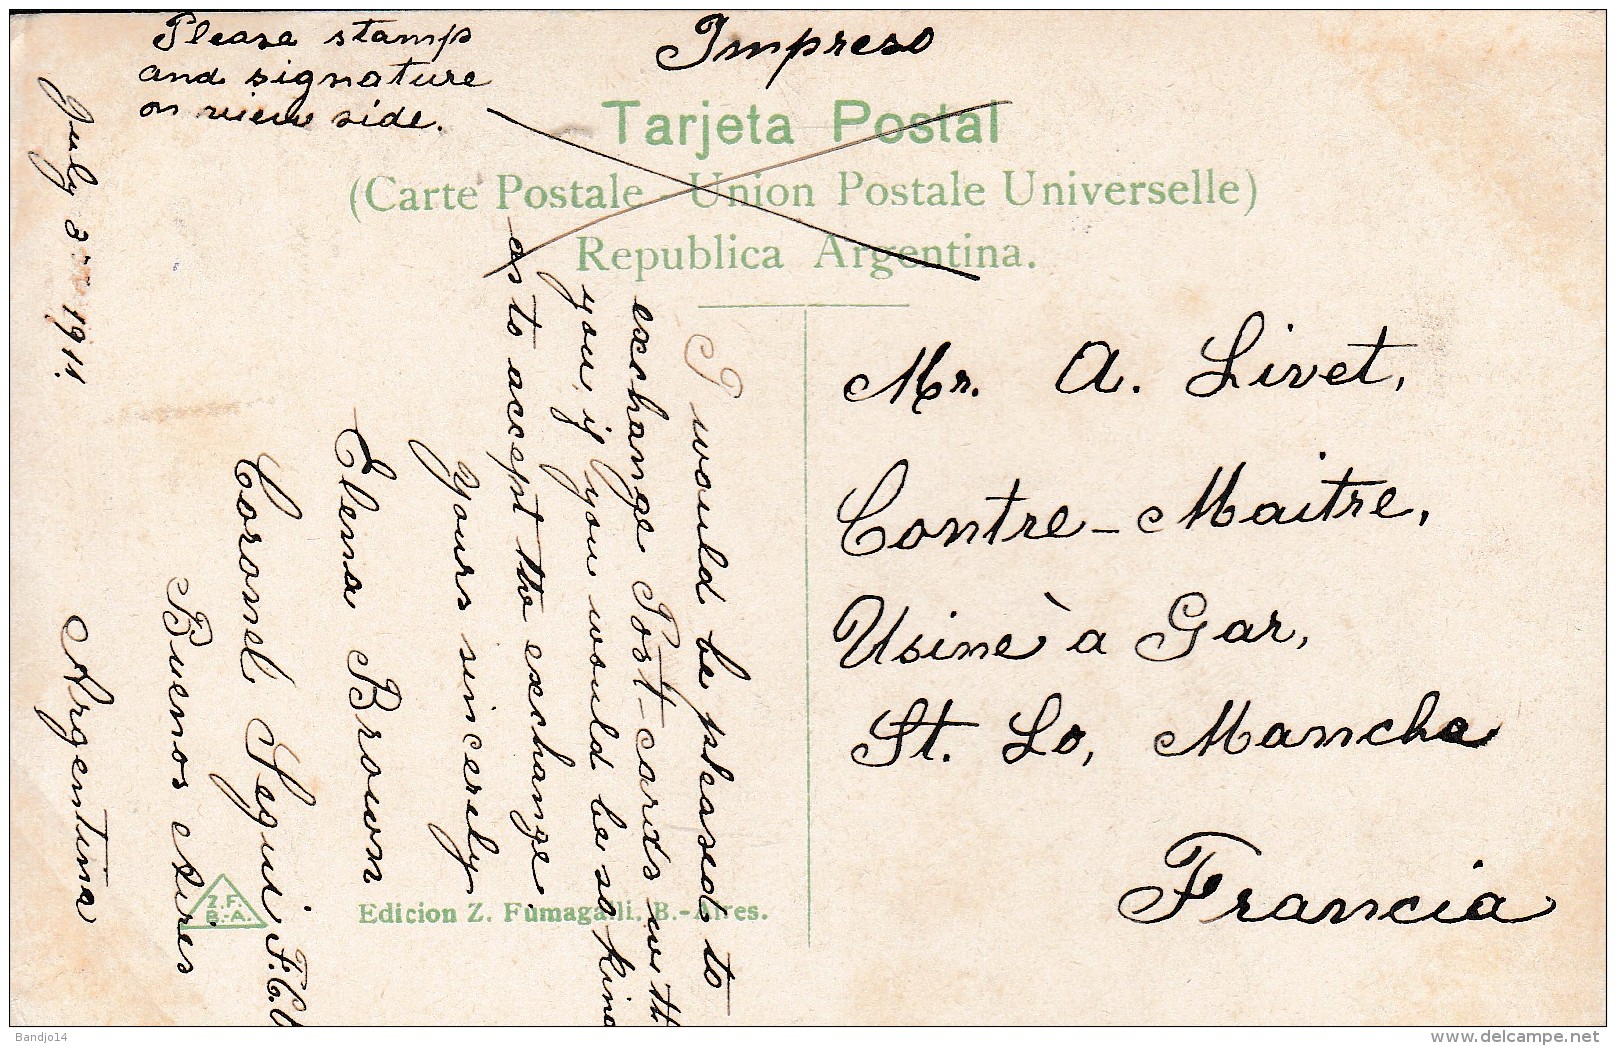 Please stamp
and signature
on view side.
Impreso
Tarjeta Postal
(Carte Postale - Union Postale Universelle)
Republica Argentina.
July 3 1911.
I would be pleased to
exchange Post-cards with
you, if you would be so kind
as to accept the exchange.
Yours sincerely
Elena Brown
Coronel Segui F.C.
Buenos Aires
Argentina
Mr. A. Livet,
Contre-Maitre,
Usine à Gar,
St. Lo, Mancha
Francia
Z.F.
B.-A.
Edicion Z. Fumagalli. B.-Aires.
Bandjo14
delcampe.net